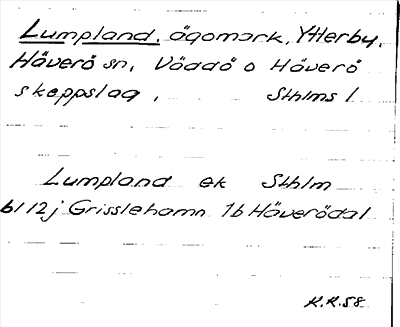 Lumpland, ägomark, Ytterby,
Häverö sn, Väddö o Häverö
skeppslag, Sthlms l
Lumpland ek Sthlm
bl 12j Grisslehamn 1b Häverödal
K.R.58